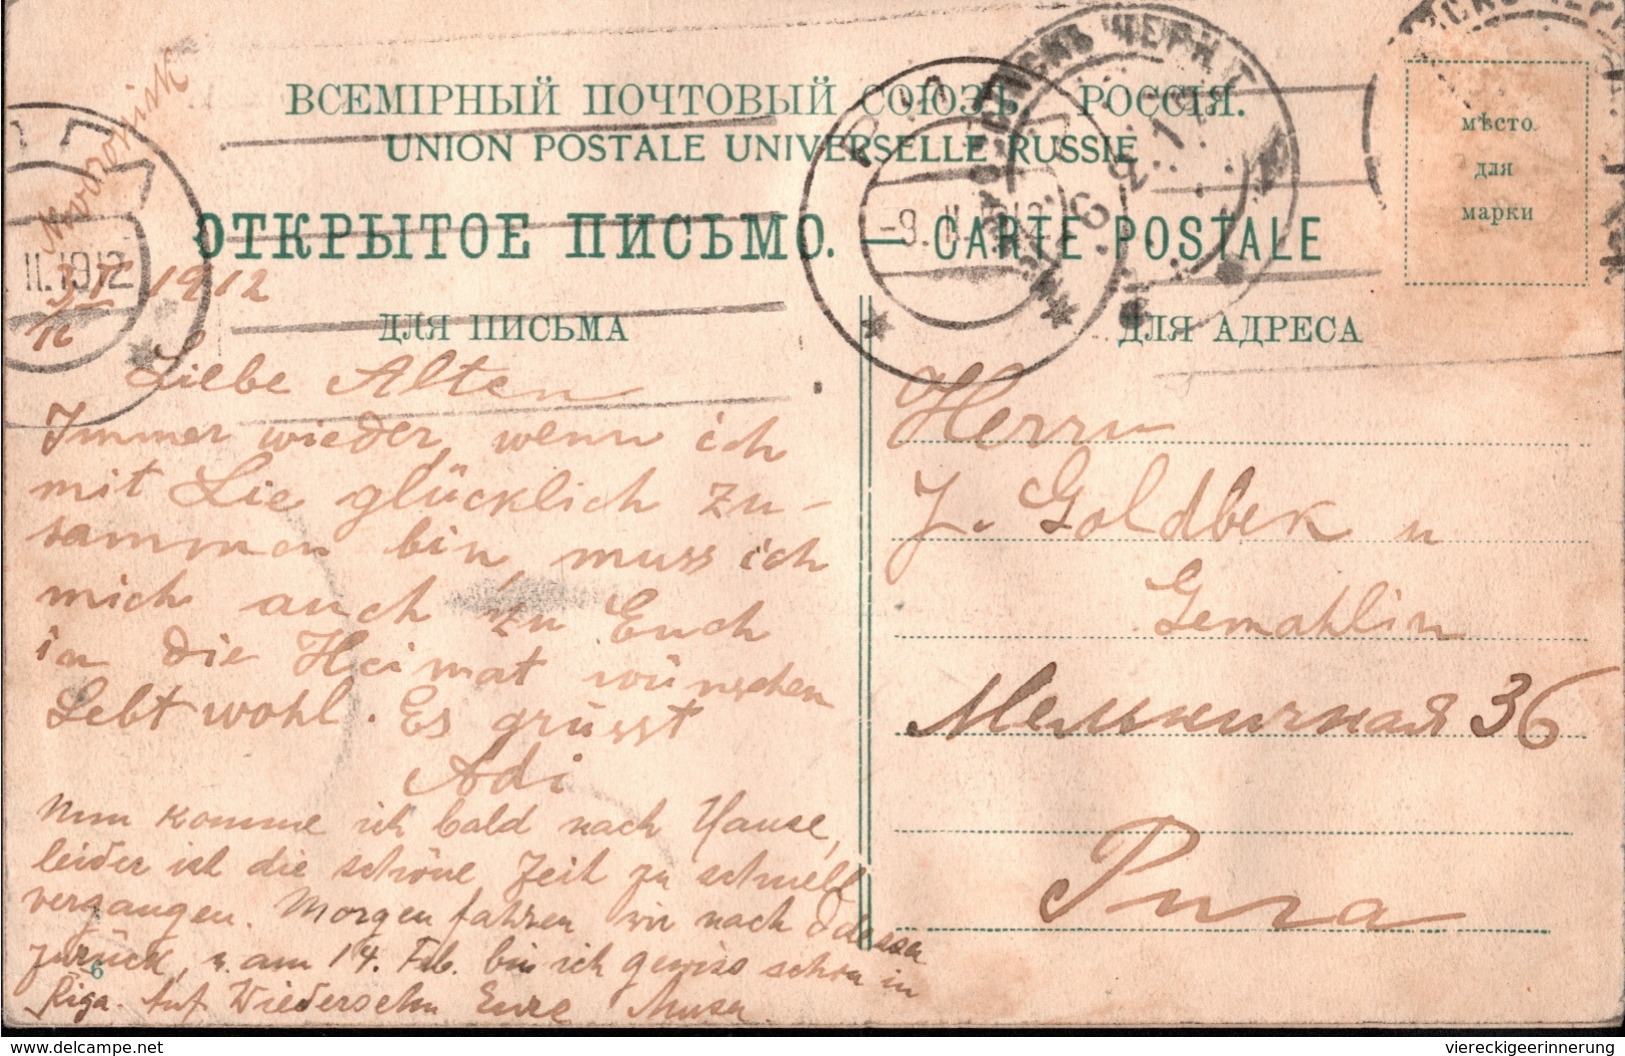 ВСЕМІРНЫЙ ПОЧТОВЫЙ СОЮЗЪ. РОССІЯ.
UNION POSTALE UNIVERSELLE RUSSIE
ОТКРЫТОЕ ПИСЬМО. — CARTE POSTALE
ДЛЯ ПИСЬМА
ДЛЯ АДРЕСА
мѣсто
для
марки
-9. II. 12
II.1912
1912
Liebe Alten
Immer wieder, wenn ich
mit Lie glücklich zu-
sammen bin, muss ich
mich auch zu Euch
in die Heimat wünschen
Lebt wohl. Es grüsst
Adi
Nun komme ich bald nach Hause,
leider ist die schöne Zeit zu schnell
vergangen. Morgen fahren wir nach Odessa
zurück, u. am 14. Feb. bin ich gewiss schon in
Riga. Auf Wiedersehn Eure
6
Herrn
J. Goldbek u
Gemahlin
36
Рига
viereckigeerinnerung
https://www.delcampe.net